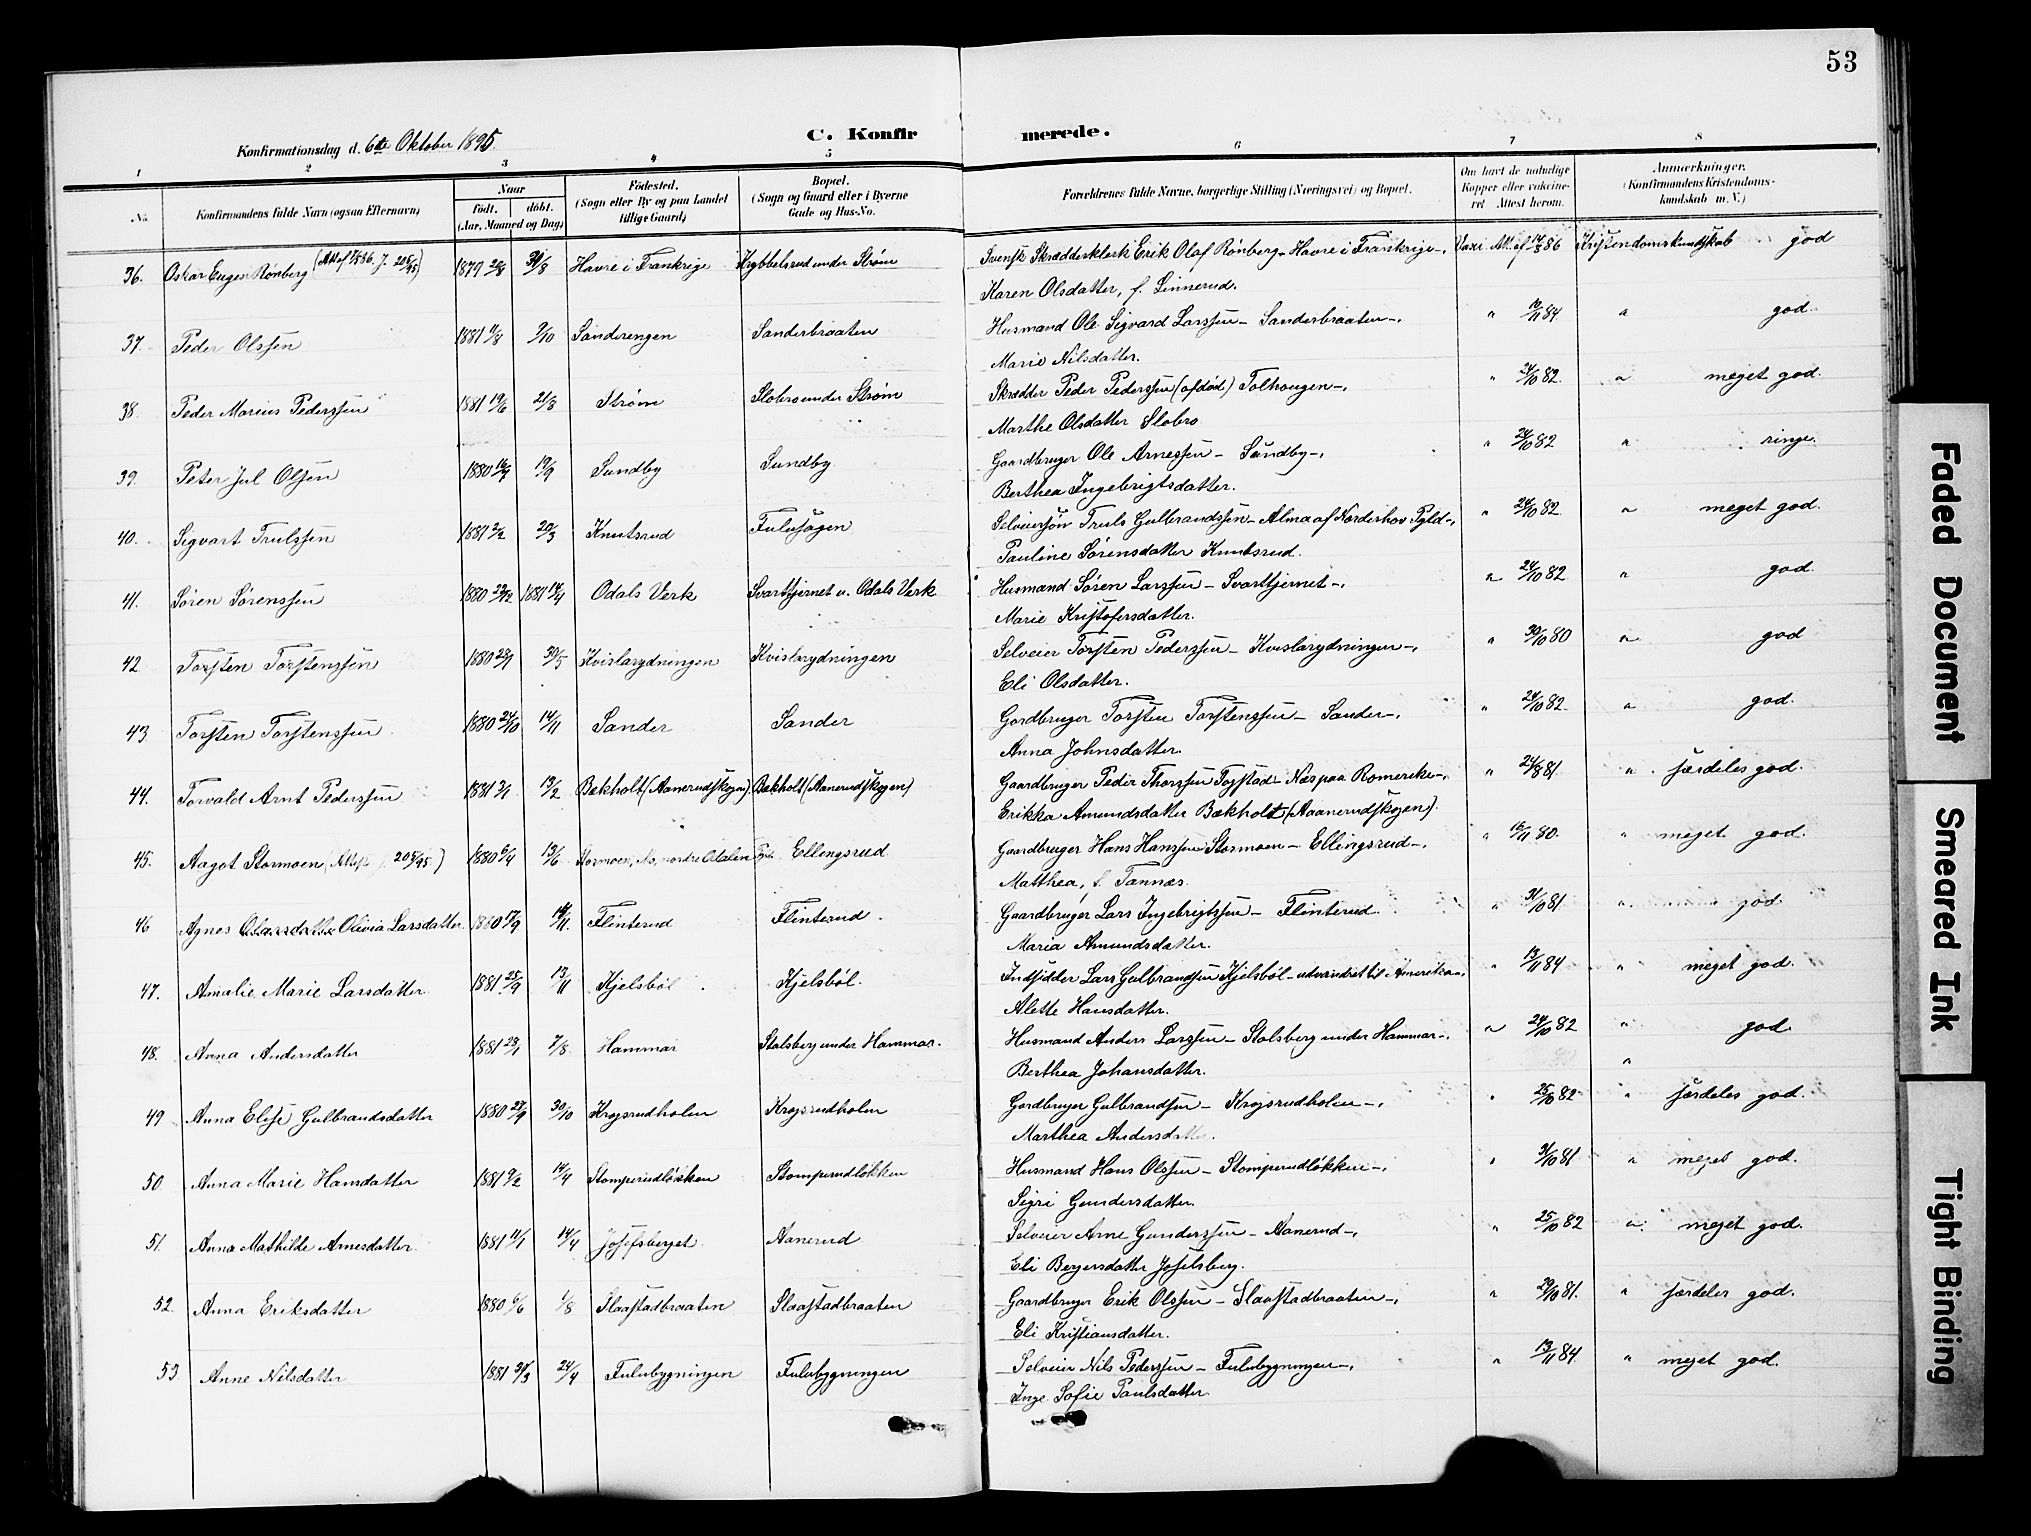 53
C. Konfirmerede.
Konfirmationsdag d. 6te Oktober 1895.
1 2 3 4 5 6 7 8
No. Konfirmandens fulde Navn (ogsaa Efternavn)
Naar
født. døbt.
(Aar, Maaned og Dag)
Fødested.
(Sogn eller By og paa Landet
tillige Gaard)
Bopæl.
(Sogn og Gaard eller i Byerne
Gade og Hus-No.
Forældrenes fulde Navne, borgerlige Stilling (Næringsvei) og Bopæl.
Om havt de naturlige
Kopper eller vakcine-
ret Attest herom.
Anmærkninger.
(Konfirmandens Kristendoms-
kundskab m. V.)
36. Oskar Eugen Rønberg 1879 Havre i Frankrige Krybbelsrud under Strøm Svensk Skrædderklerk Erik Olaf Rønberg - Havre i Frankrige -, Vaxi Att. af 14/8 86 Kristendomskundskab god
Karen Olsdatter, f. Linnerud.
37. Peder Olssen 1881 11/8 9/10 Sanderengen Sanderbraaten Husmand Ole Sigvard Larssen - Sanderbraaten -, " 10/11 84 " god.
Marie Nilsdatter.
38. Peder Marius Pederssen 1881 19/6 21/8 Strøm Slobro under Strøm Skrædder Peder Pederssen (afdød) Tolhougen -, " 24/10 82. " meget god.
Marthe Olsdatter Slobro
39. Peter Jul Olssen 1880 19/9 Sundby Sundby Gaardbruger Ole Arnessen - Sundby -, " 24/10 82 " ringe.
Berthea Ingebrigtsdatter.
40. Sigvart Trulssen 1881 2/2 20/3 Knutsrud Fulusagen Selveiersøn Truls Gulbrandssen - Alma af Norderhov Pgld -, " 24/10 82. " meget god.
Pauline Sørensdatter Knutsrud.
41. Søren Sørenssen 1880 29/12 1881 18/4 Odals Verk Svarttjernet u. Odals Verk Husmand Søren Larssen - Svarttjernet -, " 24/10 82 " god.
Marie Kristofersdatter.
42 Torsten Torstenssen 1880 23/1 30/5 Kvislarydningen Kvislarydningen Selveier Torsten Pederssen - Kvislarydningen -, " 30/10 80 " god
Eli Olsdatter.
43. Torsten Torstenssen 1880 24/10 14/11 Sander Sander Gordbruger Torsten Torstenssen - Sander -, " 24/10 82. " god.
Anna Johnsdatter.
44. Torvald Arnt Pederssen 1881 2/1 13/2 Bækholt (Aanerudskogen). Bækholt (Aanerudskogen) Gaardbruger Peder Thorssen Fogstad - Næs paa Romerike -, " 24/8 81. " særdeles god.
Erikka Amundsdatter Bækholt (Aaanerudskogen).
45. Aagot Stormoen 1880 6/4 13/6 Stormoen, nordre Odalen Ellingsrud Gaardbruger Hans Hanssen Stormoen - Ellingsrud -, " 16/11 80. " meget god.
Matthea, f. Tannæs
46 Agnes Olivia Larsdatter. 1880 17/9 14/11. Flinterud Flinterud. Gaardbruger Lars Ingebrigtssen - Flinterud. " 31/10 81. " god.
Maria Amundsdatter.
47. Amalie Marie Larsdatter. 1881 25/9 13/11 Kjelsbøl Kjelsbøl. Indsidder Lars Gulbrandsen Kjelsbøl - udvandret til Amerika -, " 13/11 84 " meget god.
Alette Hansdatter.
48. Anna Andersdatter 1881 23/1 7/8 Hammar Stalsberg under Hammar. Husmand Anders Larssen - Stalsberg under Hammar -, " 24/10 82 " god.
Berthea Johansdatter. "
49 Anna Elise Gulbrandsdatter 1880 27/9 30/10 Krojsrudholen Krojsrudholen Gordbruger Gulbrandsen - Krojsrudholen -, " 25/10 82 " særdeles god.
Marthea Andersdatter.
50. Anna Marie Hansdatter 1881 9/2 14/4 Stomperudløkken Stomperudløkken Husmand Hans Olssen - Stomperudløkken -, " 31/10 81 " meget god.
Sigri Gundersdatter.
51. Anna Mathilde Arnesdatter 1881 11/1 14/4 Josefsberget Aanerud Selveier Arne Gunderssen - Aanerud -, " 25/10 82 " meget god.
Eli Bergersdatter Josefsberg.
52. Anna Eriksdatter 1880 6/6 1/8 Slaastadbraaten Slaastadbraaten Gaardbruger Erik Olssen - Slaastadbraaten -, " 29/10 81. " særdeles god.
Eli Kristiansdatter.
53 Anne Nilsdatter 1881 24/4 Fulubygningen Fulubygningen Selveier Nils Pederssen - Fulubygningen -, " 13/11 84. " meget god.
Inge Sofie Paulsdatter.
Faded Document
Smeared Ink
Tight Binding